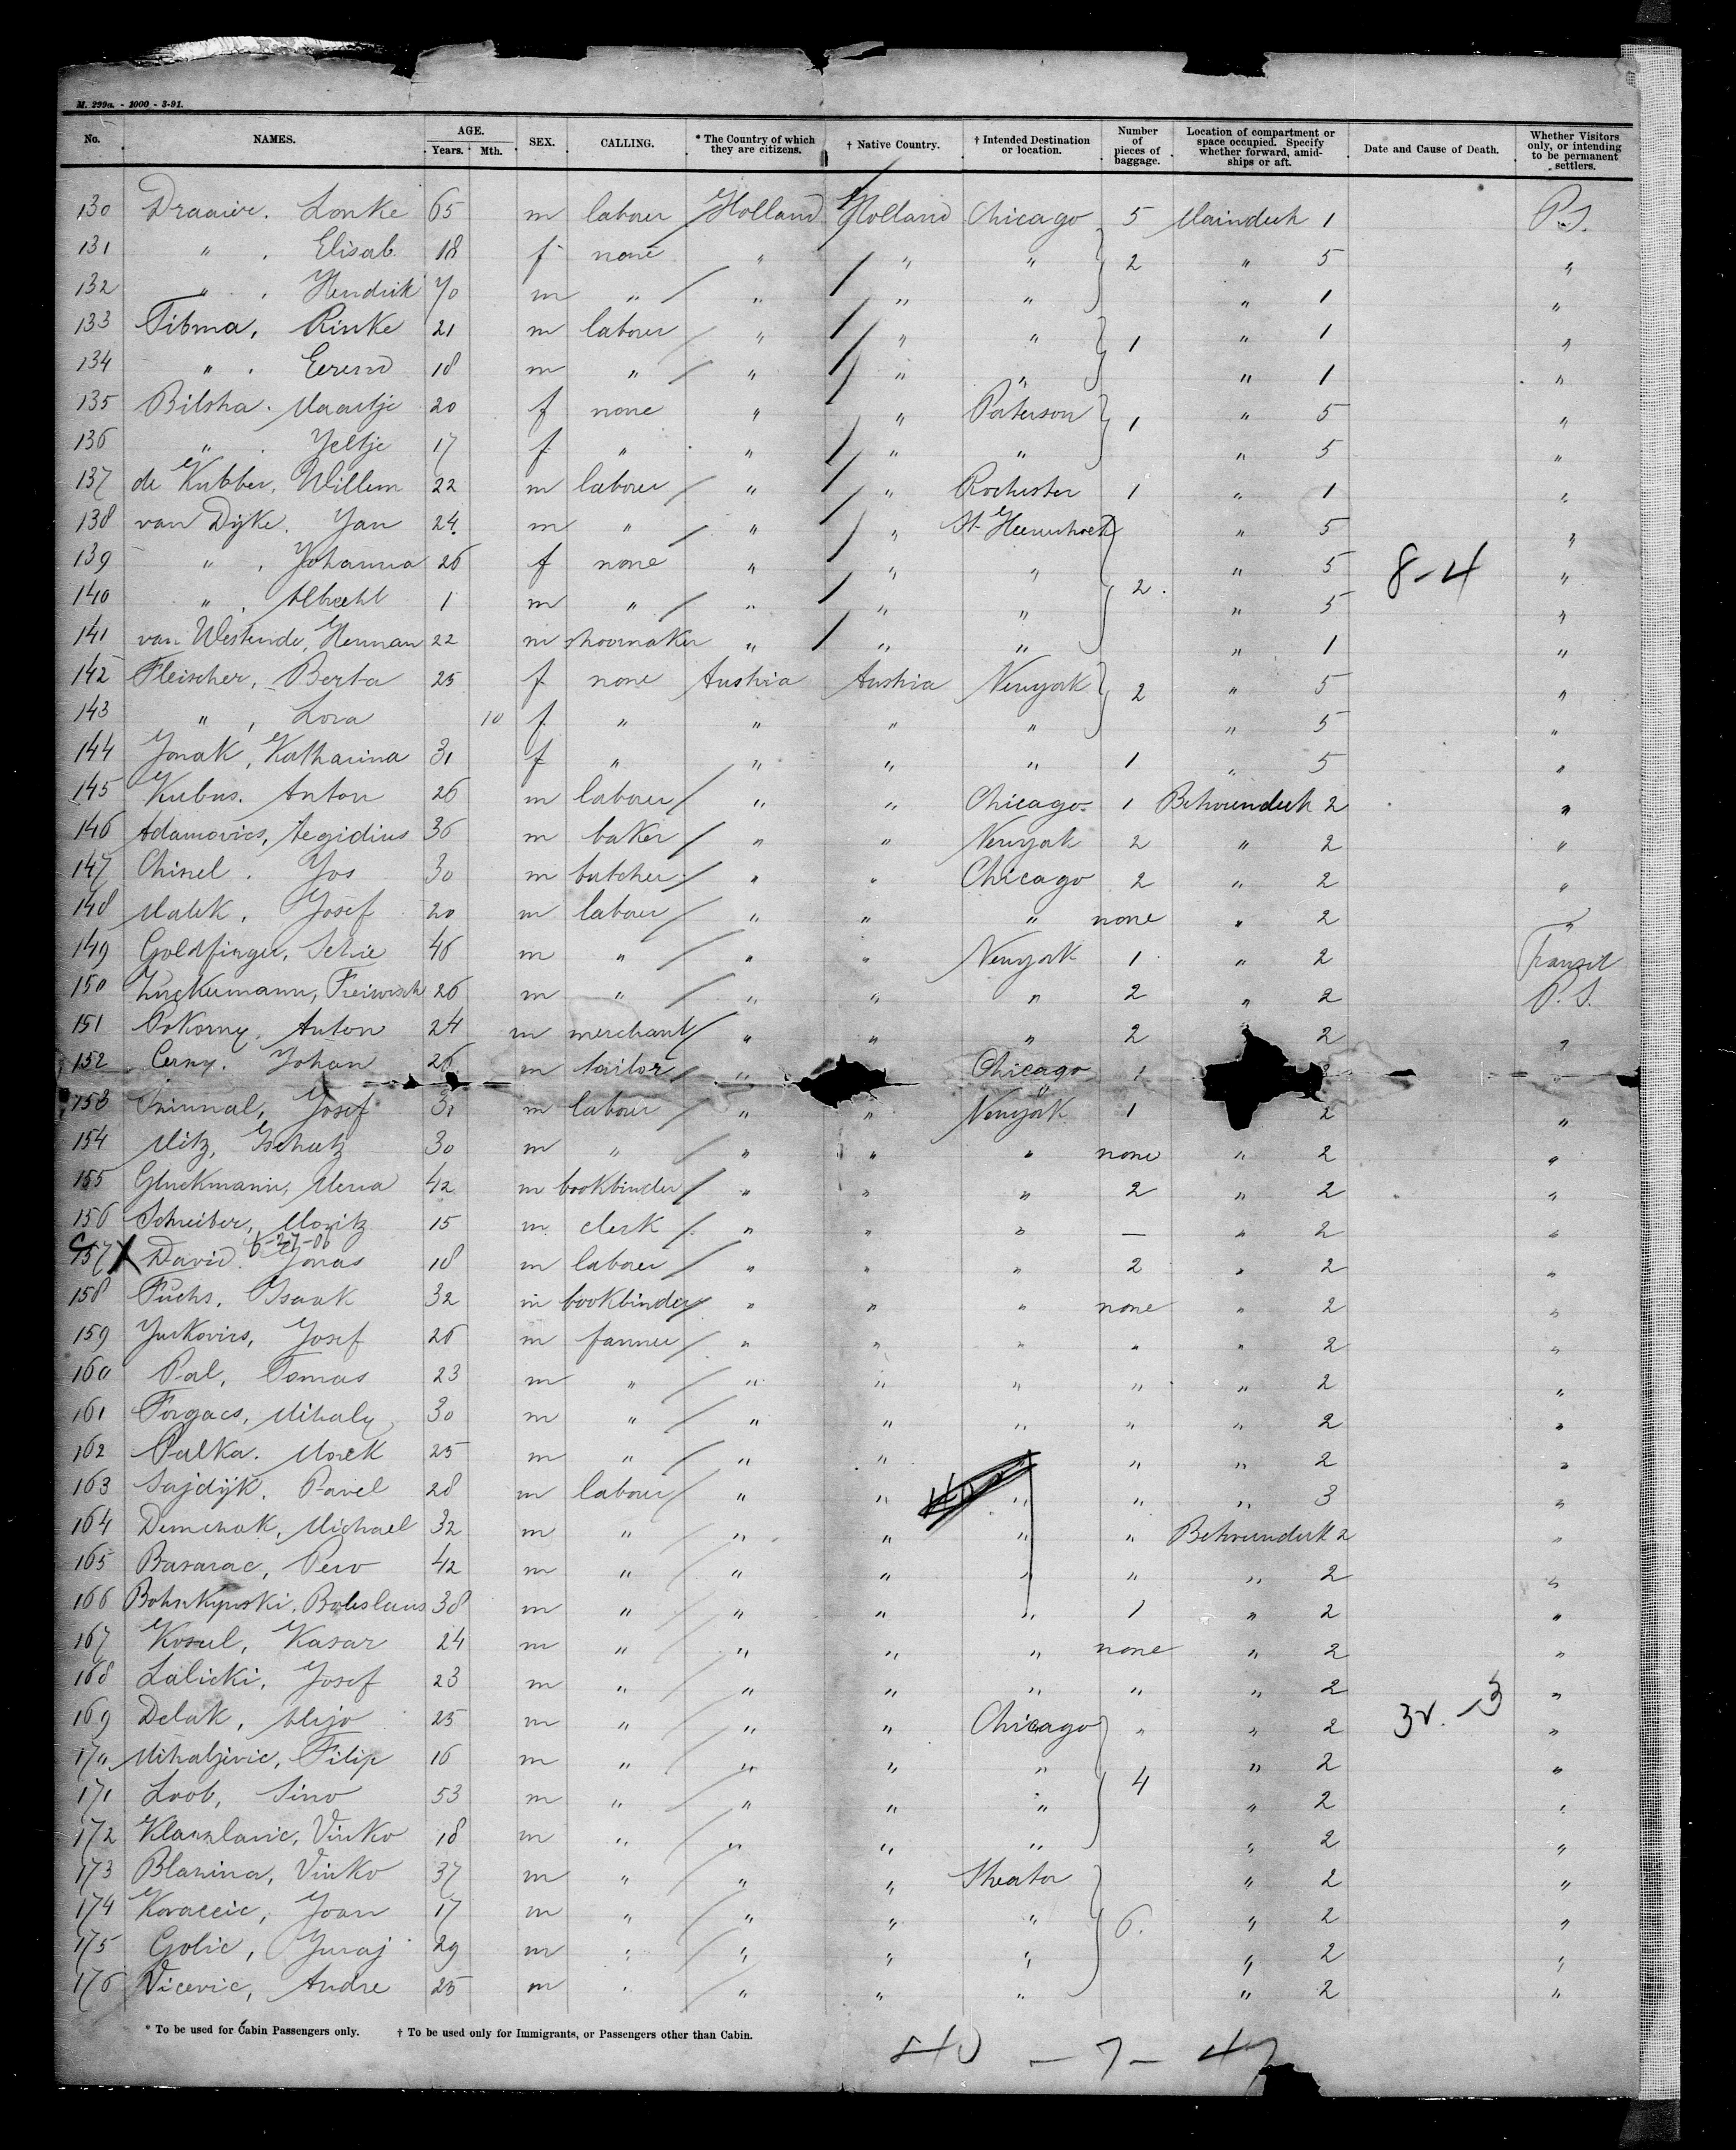 M. 299a. - 1000 - 3-91.
No. NAMES. AGE. Years. Mth. SEX. CALLING. * The Country of which they are citizens. † Native Country. † Intended Destination or location. Number of pieces of baggage. Location of compartment or space occupied. Specify whether forward, amid-ships or aft. Date and Cause of Death. Whether Visitors only, or intending to be permanent settlers.
130 Draaier. Lonke 65 m labour Holland Holland Chicago 5 Maindeck 1 P.S.
131 " . Elisab. 18 f none " " " 2 " 5 "
132 " . Hendrik 70 m " " " " " 1 "
133 Tibma, Rinke 21 m labour " " " 1 " 1 "
134 " . 18 m " " " " " 1 "
135 Bilstra. Maartje 20 f none " " Paterson 1 " 5 "
136 " . Yeltje 17 f " " " " " 5 "
137 de Kubber, Willem 22 m labour " " Rochester 1 " 1 "
138 van Dijke. Yan 24. m " " " St. " 5 "
139 " , Johanna 26 f none " " " 2. " 5 8-4 "
140 " . Albrecht 1 m " " " " " 5 "
141 van Westende, Herman 22 m shoemaker " " " " 1 "
142 Fleischer, Berta 25 f none Austria Austria Newyork 2 " 5 "
143 " , Lora 10 f " " " " " 5 "
144 Jonak, Katharina 31 f " " " " 1 " 5 "
145 Kubus. Anton 26 m labour " " Chicago. 1 Betweendeck 2 "
146 Adamovics, Aegidius 36 m baker " " Newyork 2 " 2 "
147 Chisel. Yos 30 m butcher " " Chicago 2 " 2 "
148 Malek, Josef 20 m labour " " " none " 2 "
149 Goldfinger, Schie 46 m " " " Newyork 1 " 2 Transit
150 Zuckermann, 26 m " " " " 2 " 2 P.S.
151 Pokorny. Anton 24 m merchant " " " 2 2 "
152 Cerny. Johan 26 m tailor " Chicago 1
153 Josef 31 m labour " " Newyork 1 2 "
154 Mitz, 30 m " " " " none " 2 "
155 Gluckmann, 42 m bookbinder " " " 2 " 2 "
156 Schreiber, Moritz 15 m clerk " " " — " 2 "
6-27-06
157 X David. Jonas 18 m labour " " " 2 " 2 "
158 Fuchs, Isaak 32 m bookbinder " " " none " 2 "
159 Yurkovics, Josef 26 m farmer " " " " " 2 "
160 Pal, Tomas 23 m " " " " " " 2 "
161 Forgacs, Mihaly 30 m " " " " " " 2 "
162 Palka. 25 m " " " " " 2 "
163 Sajdijk. Pavel 28 m labour " " " " " 3 "
164 Demchak, Michael 32 m " " " " " Betweendeck 2 "
165 Basarac, Pero 42 m " " " " " " 2 "
166 Boleslaus 38 m " " " " 1 " 2 "
167 Kosul, Kasar 24 m " " " " none " 2 "
168 Lalicki, Josef 23 m " " " " " " 2 "
169 Delak, Alijo 25 m " " " Chicago " " 2 "
170 Mihaljevic, Filip 16 m " " " " 4 " 2 "
171 Loob, Simo 53 m " " " " " 2 "
172 Vinko 18 m " " " " " 2 "
173 Blanina, Vinko 37 m " " " Streator " 2 "
174 Kovaccic, Joan 17 m " " " " 6. " 2 "
175 Golic, Juraj 29 m " " " " " 2 "
176 Vicevic, Andre 25 m " " " " " 2 "
* To be used for Cabin Passengers only. † To be used only for Immigrants, or Passengers other than Cabin.
40 - 7 - 47